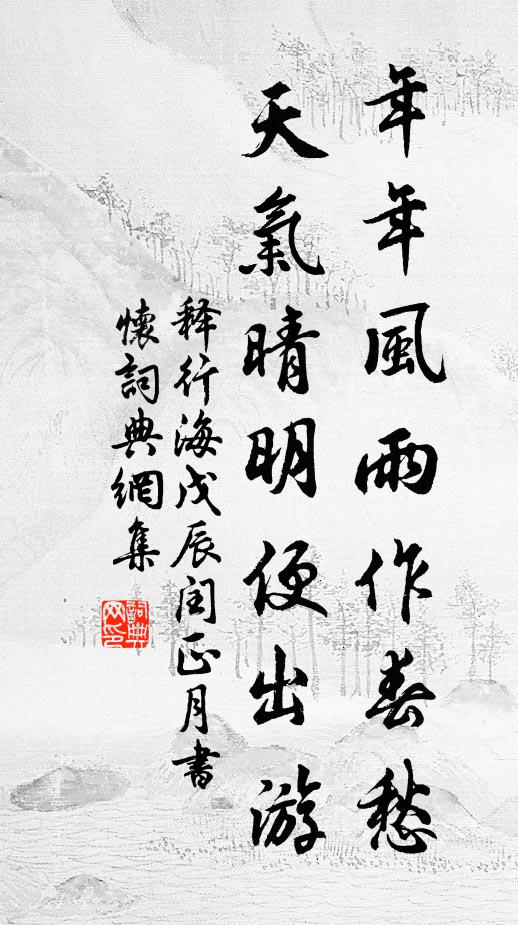 年年風雨作春愁
天氣晴明便出游
释行海戊辰闰正月書
懷詞典網集
詞典网印